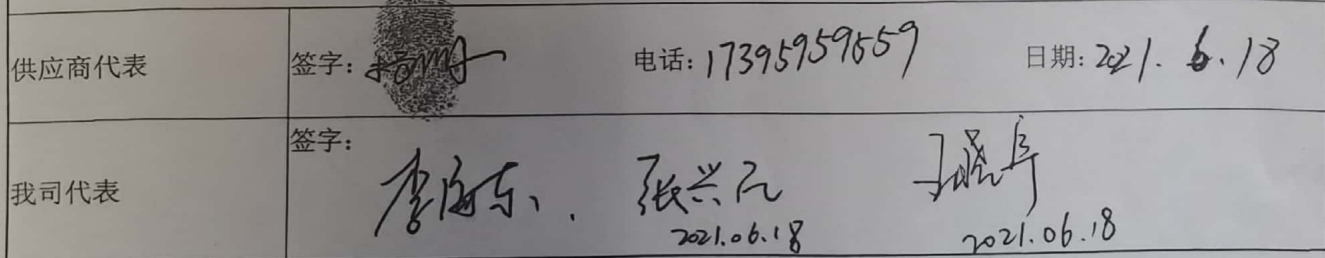 供应商代表 签字: 电话:17395959559 日期:2021.6.18
签字:
我司代表 李海东、 张兴元
2021.06.18 2021.06.18